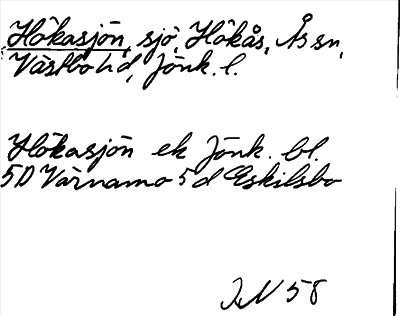 Hökasjön, sjö, Hökås, Ås sn,
Västbo hd, Jönk. l.
Hökasjön ek Jönk. bl.
5D Värnamo 5 d Eskilsbo
IN 58